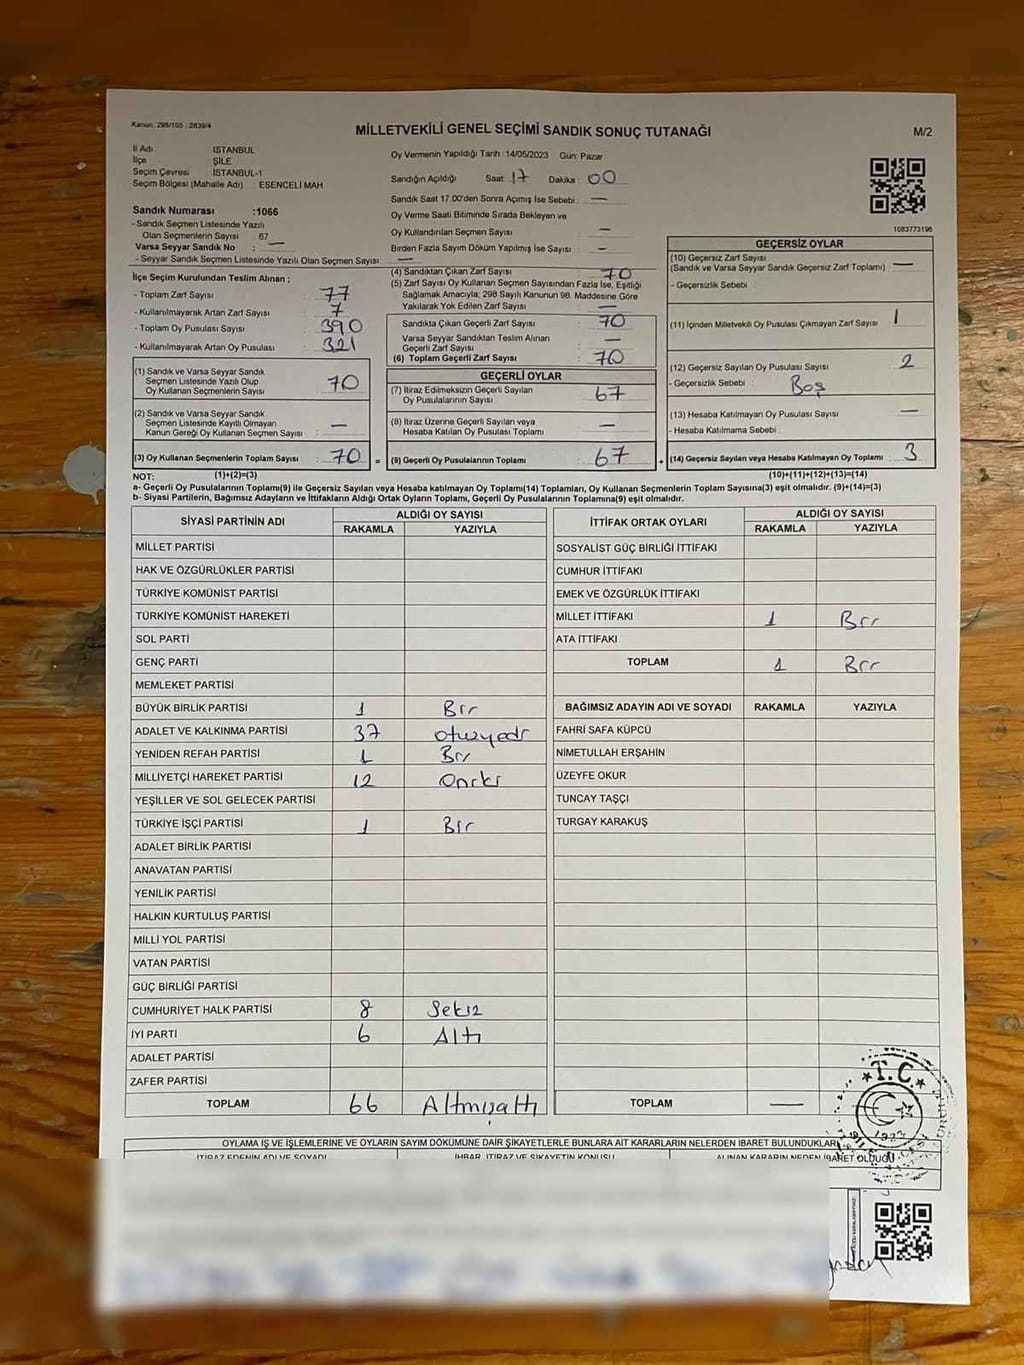 Kanun: 298/105 : 2839/4
MİLLETVEKİLİ GENEL SEÇİMİ SANDIK SONUÇ TUTANAĞI
M/2
İl Adı : İSTANBUL
İlçe : ŞİLE
Seçim Çevresi : İSTANBUL-1
Seçim Bölgesi (Mahalle Adı) : ESENCELİ MAH.
Sandık Numarası :1066
- Sandık Seçmen Listesinde Yazılı
Olan Seçmenlerin Sayısı : 67
Varsa Seyyar Sandık No : —
- Seyyar Sandık Seçmen Listesinde Yazılı Olan Seçmen Sayısı: —
Oy Vermenin Yapıldığı Tarih : 14/05/2023 Gün: Pazar
Sandığın Açıldığı Saat : 17 Dakika : 00
Sandık Saat 17.00'den Sonra Açımış İse Sebebi : —
Oy Verme Saati Bitiminde Sırada Bekleyen ve
Oy Kullandırılan Seçmen Sayısı : —
Birden Fazla Sayım Döküm Yapılmış İse Sayısı : —
1083773196
İlçe Seçim Kurulundan Teslim Alınan ;
- Toplam Zarf Sayısı : 77
- Kullanılmayarak Artan Zarf Sayısı : 7
- Toplam Oy Pusulası Sayısı : 390
- Kullanılmayarak Artan Oy Pusulası : 321
(1) Sandık ve Varsa Seyyar Sandık
Seçmen Listesinde Yazılı Olup
Oy Kullanan Seçmenlerin Sayısı : 70
(2) Sandık ve Varsa Seyyar Sandık
Seçmen Listesinde Kayıtlı Olmayan
Kanun Gereği Oy Kullanan Seçmen Sayısı : —
(3) Oy Kullanan Seçmenlerin Toplam Sayısı : 70 =
(4) Sandıktan Çıkan Zarf Sayısı : 70
(5) Zarf Sayısı Oy Kullanan Seçmen Sayısından Fazla İse, Eşitliği
Sağlamak Amacıyla; 298 Sayılı Kanunun 98. Maddesine Göre
Yakılarak Yok Edilen Zarf Sayısı : —
Sandıkta Çıkan Geçerli Zarf Sayısı : 70
Varsa Seyyar Sandıktan Teslim Alınan
Geçerli Zarf Sayısı : —
(6) Toplam Geçerli Zarf Sayısı : 70
GEÇERLİ OYLAR
(7) İtiraz Edilmeksizin Geçerli Sayılan
Oy Pusulalarının Sayısı : 67
(8) İtiraz Üzerine Geçerli Sayılan veya
Hesaba Katılan Oy Pusulası Toplamı : —
(9) Geçerli Oy Pusulalarının Toplamı : 67 +
GEÇERSİZ OYLAR
(10) Geçersiz Zarf Sayısı
(Sandık ve Varsa Seyyar Sandık Geçersiz Zarf Toplamı) : —
- Geçersizlik Sebebi
(11) İçinden Milletvekili Oy Pusulası Çıkmayan Zarf Sayısı : 1
(12) Geçersiz Sayılan Oy Pusulası Sayısı : 2
- Geçersizlik Sebebi : Boş
(13) Hesaba Katılmayan Oy Pusulası Sayısı : —
- Hesaba Katılmama Sebebi :
(14) Geçersiz Sayılan veya Hesaba Katılmayan Oy Toplamı : 3
NOT: (1)+(2)=(3) (10)+(11)+(12)+(13)=(14)
a- Geçerli Oy Pusulalarının Toplamı(9) ile Geçersiz Sayılan veya Hesaba katılmayan Oy Toplamı(14) Toplamları, Oy Kullanan Seçmenlerin Toplam Sayısına(3) eşit olmalıdır. (9)+(14)=(3)
b- Siyasi Partilerin, Bağımsız Adayların ve İttifakların Aldığı Ortak Oyların Toplamı, Geçerli Oy Pusulalarının Toplamına(9) eşit olmalıdır.
SİYASİ PARTİNİN ADI ALDIĞI OY SAYISI
RAKAMLA YAZIYLA
MİLLET PARTİSİ
HAK VE ÖZGÜRLÜKLER PARTİSİ
TÜRKİYE KOMÜNİST PARTİSİ
TÜRKİYE KOMÜNİST HAREKETİ
SOL PARTİ
GENÇ PARTİ
MEMLEKET PARTİSİ
BÜYÜK BİRLİK PARTİSİ 1 Bir
ADALET VE KALKINMA PARTİSİ 37 otuzyedi
YENİDEN REFAH PARTİSİ 1 Bir
MİLLİYETÇİ HAREKET PARTİSİ 12 Oniki
YEŞİLLER VE SOL GELECEK PARTİSİ
TÜRKİYE İŞÇİ PARTİSİ 1 Bir
ADALET BİRLİK PARTİSİ
ANAVATAN PARTİSİ
YENİLİK PARTİSİ
HALKIN KURTULUŞ PARTİSİ
MİLLİ YOL PARTİSİ
VATAN PARTİSİ
GÜÇ BİRLİĞİ PARTİSİ
CUMHURİYET HALK PARTİSİ 8 Sekiz
İYİ PARTİ 6 Altı
ADALET PARTİSİ
ZAFER PARTİSİ
TOPLAM 66 Altmışaltı
İTTİFAK ORTAK OYLARI ALDIĞI OY SAYISI
RAKAMLA YAZIYLA
SOSYALİST GÜÇ BİRLİĞİ İTTİFAKI
CUMHUR İTTİFAKI
EMEK VE ÖZGÜRLÜK İTTİFAKI
MİLLET İTTİFAKI 1 Bir
ATA İTTİFAKI
TOPLAM 1 Bir
BAĞIMSIZ ADAYIN ADI VE SOYADI RAKAMLA YAZIYLA
FAHRİ SAFA KÜPCÜ
NİMETULLAH ERŞAHİN
ÜZEYFE OKUR
TUNCAY TAŞÇI
TURGAY KARAKUŞ
TOPLAM —
T.C.
OYLAMA İŞ VE İŞLEMLERİNE VE OYLARIN SAYIM DÖKÜMÜNE DAİR ŞİKAYETLERLE BUNLARA AİT KARARLARIN NELERDEN İBARET BULUNDUKLARI
İTİRAZ EDENİN ADI VE SOYADI İHBAR, İTİRAZ VE ŞİKAYETİN KONUSU ALINAN KARARIN NEDEN İBARET OLDUĞU